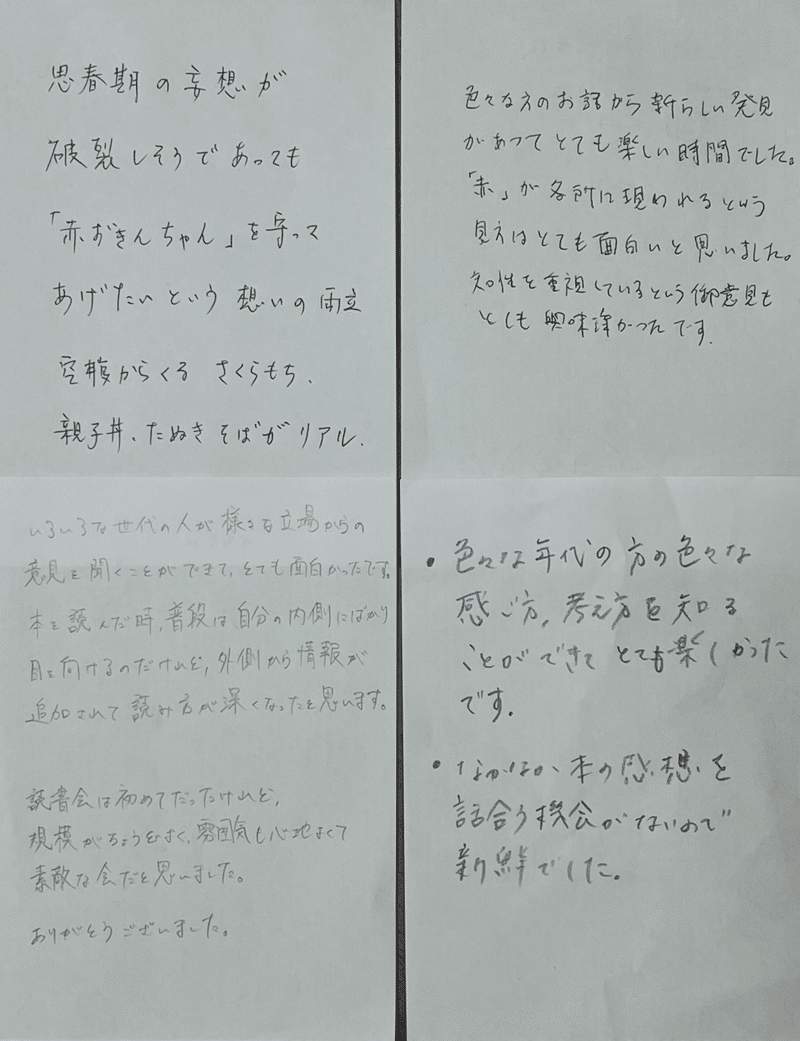 思春期の妄想が
破裂しそうであっても
「赤おきんちゃん」を守って
あげたいという想いの両立
空腹からくる さくらもち、
親子丼、たぬきそばがリアル.
色々な方のお話から新らしい発見
があってとても楽しい時間でした。
「赤」が各所に現われるという
見方はとても面白いと思いました。
知性を重視しているという御意見も
とても興味深かったです.
いろいろな世代の人が様々な立場からの
意見を聞くことができて、とても面白かったです。
本を読んだ時、普段は自分の内側にばかり
目を向けるのだけれど、外側から情報が
追加されて読み方が深くなったと思います。
読書会は初めてだったけれど、
規模がちょうどよく、雰囲気も心地よくて
素敵な会だと思いました。
ありがとうございました。
・色々な年代の方の色々な
感じ方、考え方を知る
ことができてとても楽しかった
です.
・なかなか本の感想を
話合う機会がないので
新鮮でした。